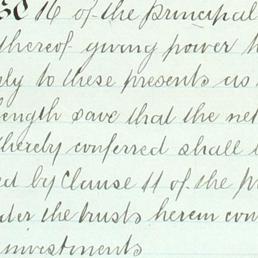 SO 16 of the principal
thereof giving power
ply to these presents as
length save that the net
thereby conferred shall
ed by Clause 11 of the
der the trusts herein con
investments